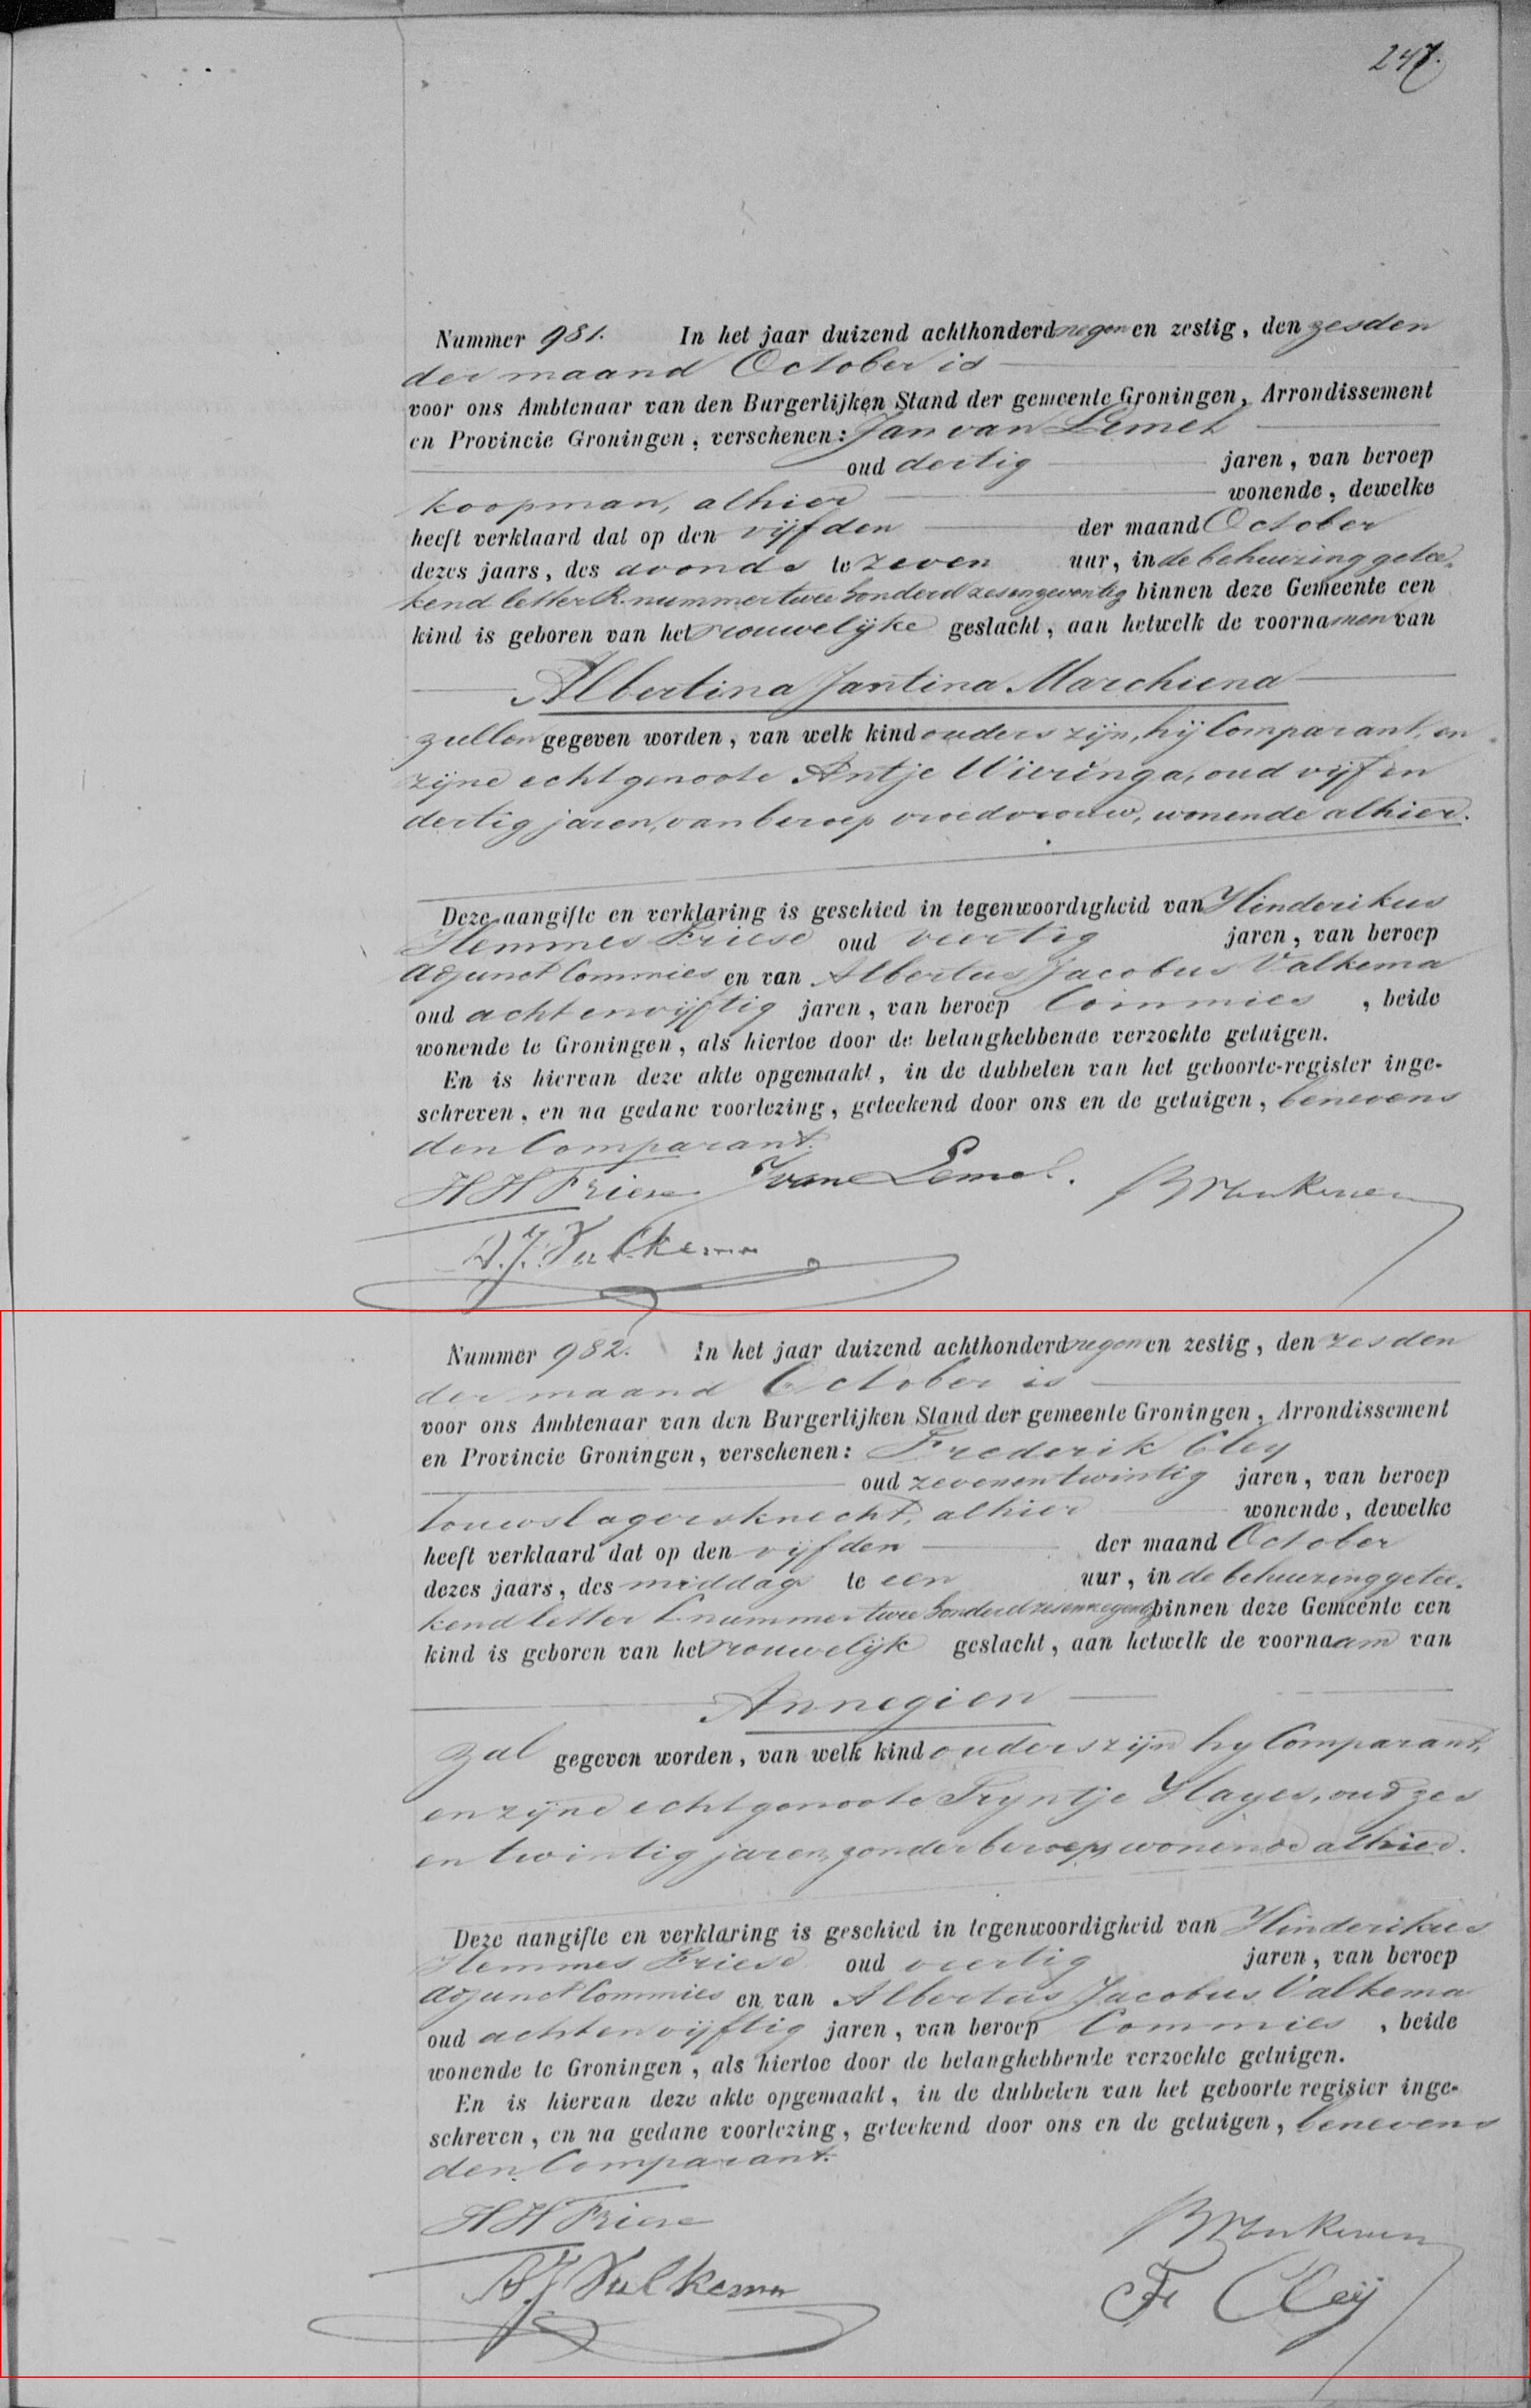 247.
Nummer 981. In het jaar duizend achthonderd negen en zestig, den zesden
der maand October is
voor ons Ambtenaar van den Burgerlijken Stand der gemeente Groningen, Arrondissement
en Provincie Groningen, verschenen: Jan van Lemel
oud dertig jaren, van beroep
koopman, alhier wonende, dewelke
heeft verklaard dat op den vijfden der maand October
dezes jaars, des avonds te zeven uur, in de behuizing getee-
kend letter R. nummer twee honderd zesenzeventig binnen deze Gemeente een
kind is geboren van het vrouwelijke geslacht, aan hetwelk de voornamen van
Albertina Jantina Marchiena
zullen gegeven worden, van welk kind ouders zijn, hij Comparant, en
zijne echtgenoote Antje Wieringa, oud vijf en
dertig jaren, van beroep vroedvrouw, wonende alhier.
Deze aangifte en verklaring is geschied in tegenwoordigheid van Hinderikus
Hemmes Friese oud veertig jaren, van beroep
adjunct Commies en van Albertus Jacobus Valkema
oud achtenvijftig jaren, van beroep Commies, beide
wonende te Groningen, als hiertoe door de belanghebbende verzochte getuigen.
En is hiervan deze akte opgemaakt, in de dubbelen van het geboorte-register inge-
schreven, en na gedane voorlezing, geteekend door ons en de getuigen, benevens
den Comparant.
HH Friese J van Lemel.
A.J. Valkema
Nummer 982. In het jaar duizend achthonderd negen en zestig, den zesden
der maand October is
voor ons Ambtenaar van den Burgerlijken Stand der gemeente Groningen, Arrondissement
en Provincie Groningen, verschenen: Frederik Cley
oud zevenentwintig jaren, van beroep
touwslagersknecht, alhier wonende, dewelke
heeft verklaard dat op den vijfden der maand October
dezes jaars, des middags te een uur, in de behuizing getee-
kend letter C nummer twee honderd zesennegentig binnen deze Gemeente een
kind is geboren van het vrouwelijk geslacht, aan hetwelk de voornaam van
Annegien
zal gegeven worden, van welk kind ouders zijn hy Comparant,
en zijne echtgenoote Tryntje Hayes, oud zes
en twintig jaren, zonder beroep, wonende alhier.
Deze aangifte en verklaring is geschied in tegenwoordigheid van Hinderikus
Hemmes Friese oud veertig jaren, van beroep
adjunct Commies en van Albertus Jacobus Valkema
oud achtenvijftig jaren, van beroep Commies, beide
wonende te Groningen, als hiertoe door de belanghebbende verzochte getuigen.
En is hiervan deze akte opgemaakt, in de dubbelen van het geboorte register inge-
schreven, en na gedane voorlezing, geteekend door ons en de getuigen, benevens
den Comparant.
HH Friese
A.J. Valkema F Cleij